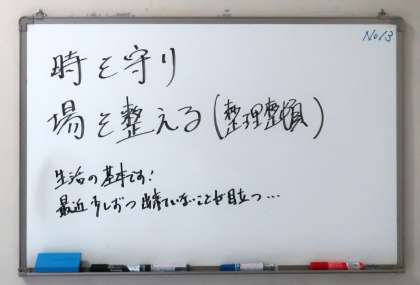 No13
時を守り
場を整える(整理整頓)
生活の基本です!
最近少しずつ出来ていないことが目立つ…